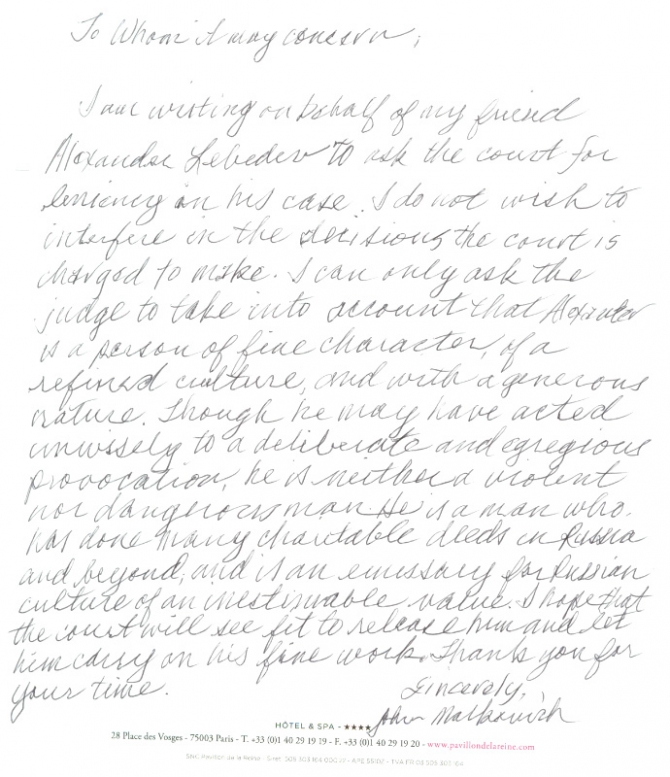 To Whom it may concern;
I am writing on behalf of my friend
Alexander Lebedev to ask the court for
leniency in his case. I do not wish to
interfere in the decisions the court is
charged to make. I can only ask the
judge to take into account that Alexander
is a person of fine character, of a
refined culture, and with a generous
nature. Though he may have acted
unwisely to a deliberate and egregious
provocation, he is neither a violent
nor dangerous man. He is a man who
has done many charitable deeds in Russia
and beyond, and is an emissary for Russian
culture of an inestimable value. I hope that
the court will see fit to release him and let
him carry on his fine work. Thank you for
your time.
Sincerely,
John Malkovich
HÔTEL & SPA - ★★★★
28 Place des Vosges - 75003 Paris - T. +33 (0)1 40 29 19 19 - F. +33 (0)1 40 29 19 20 - www.pavillondelareine.com